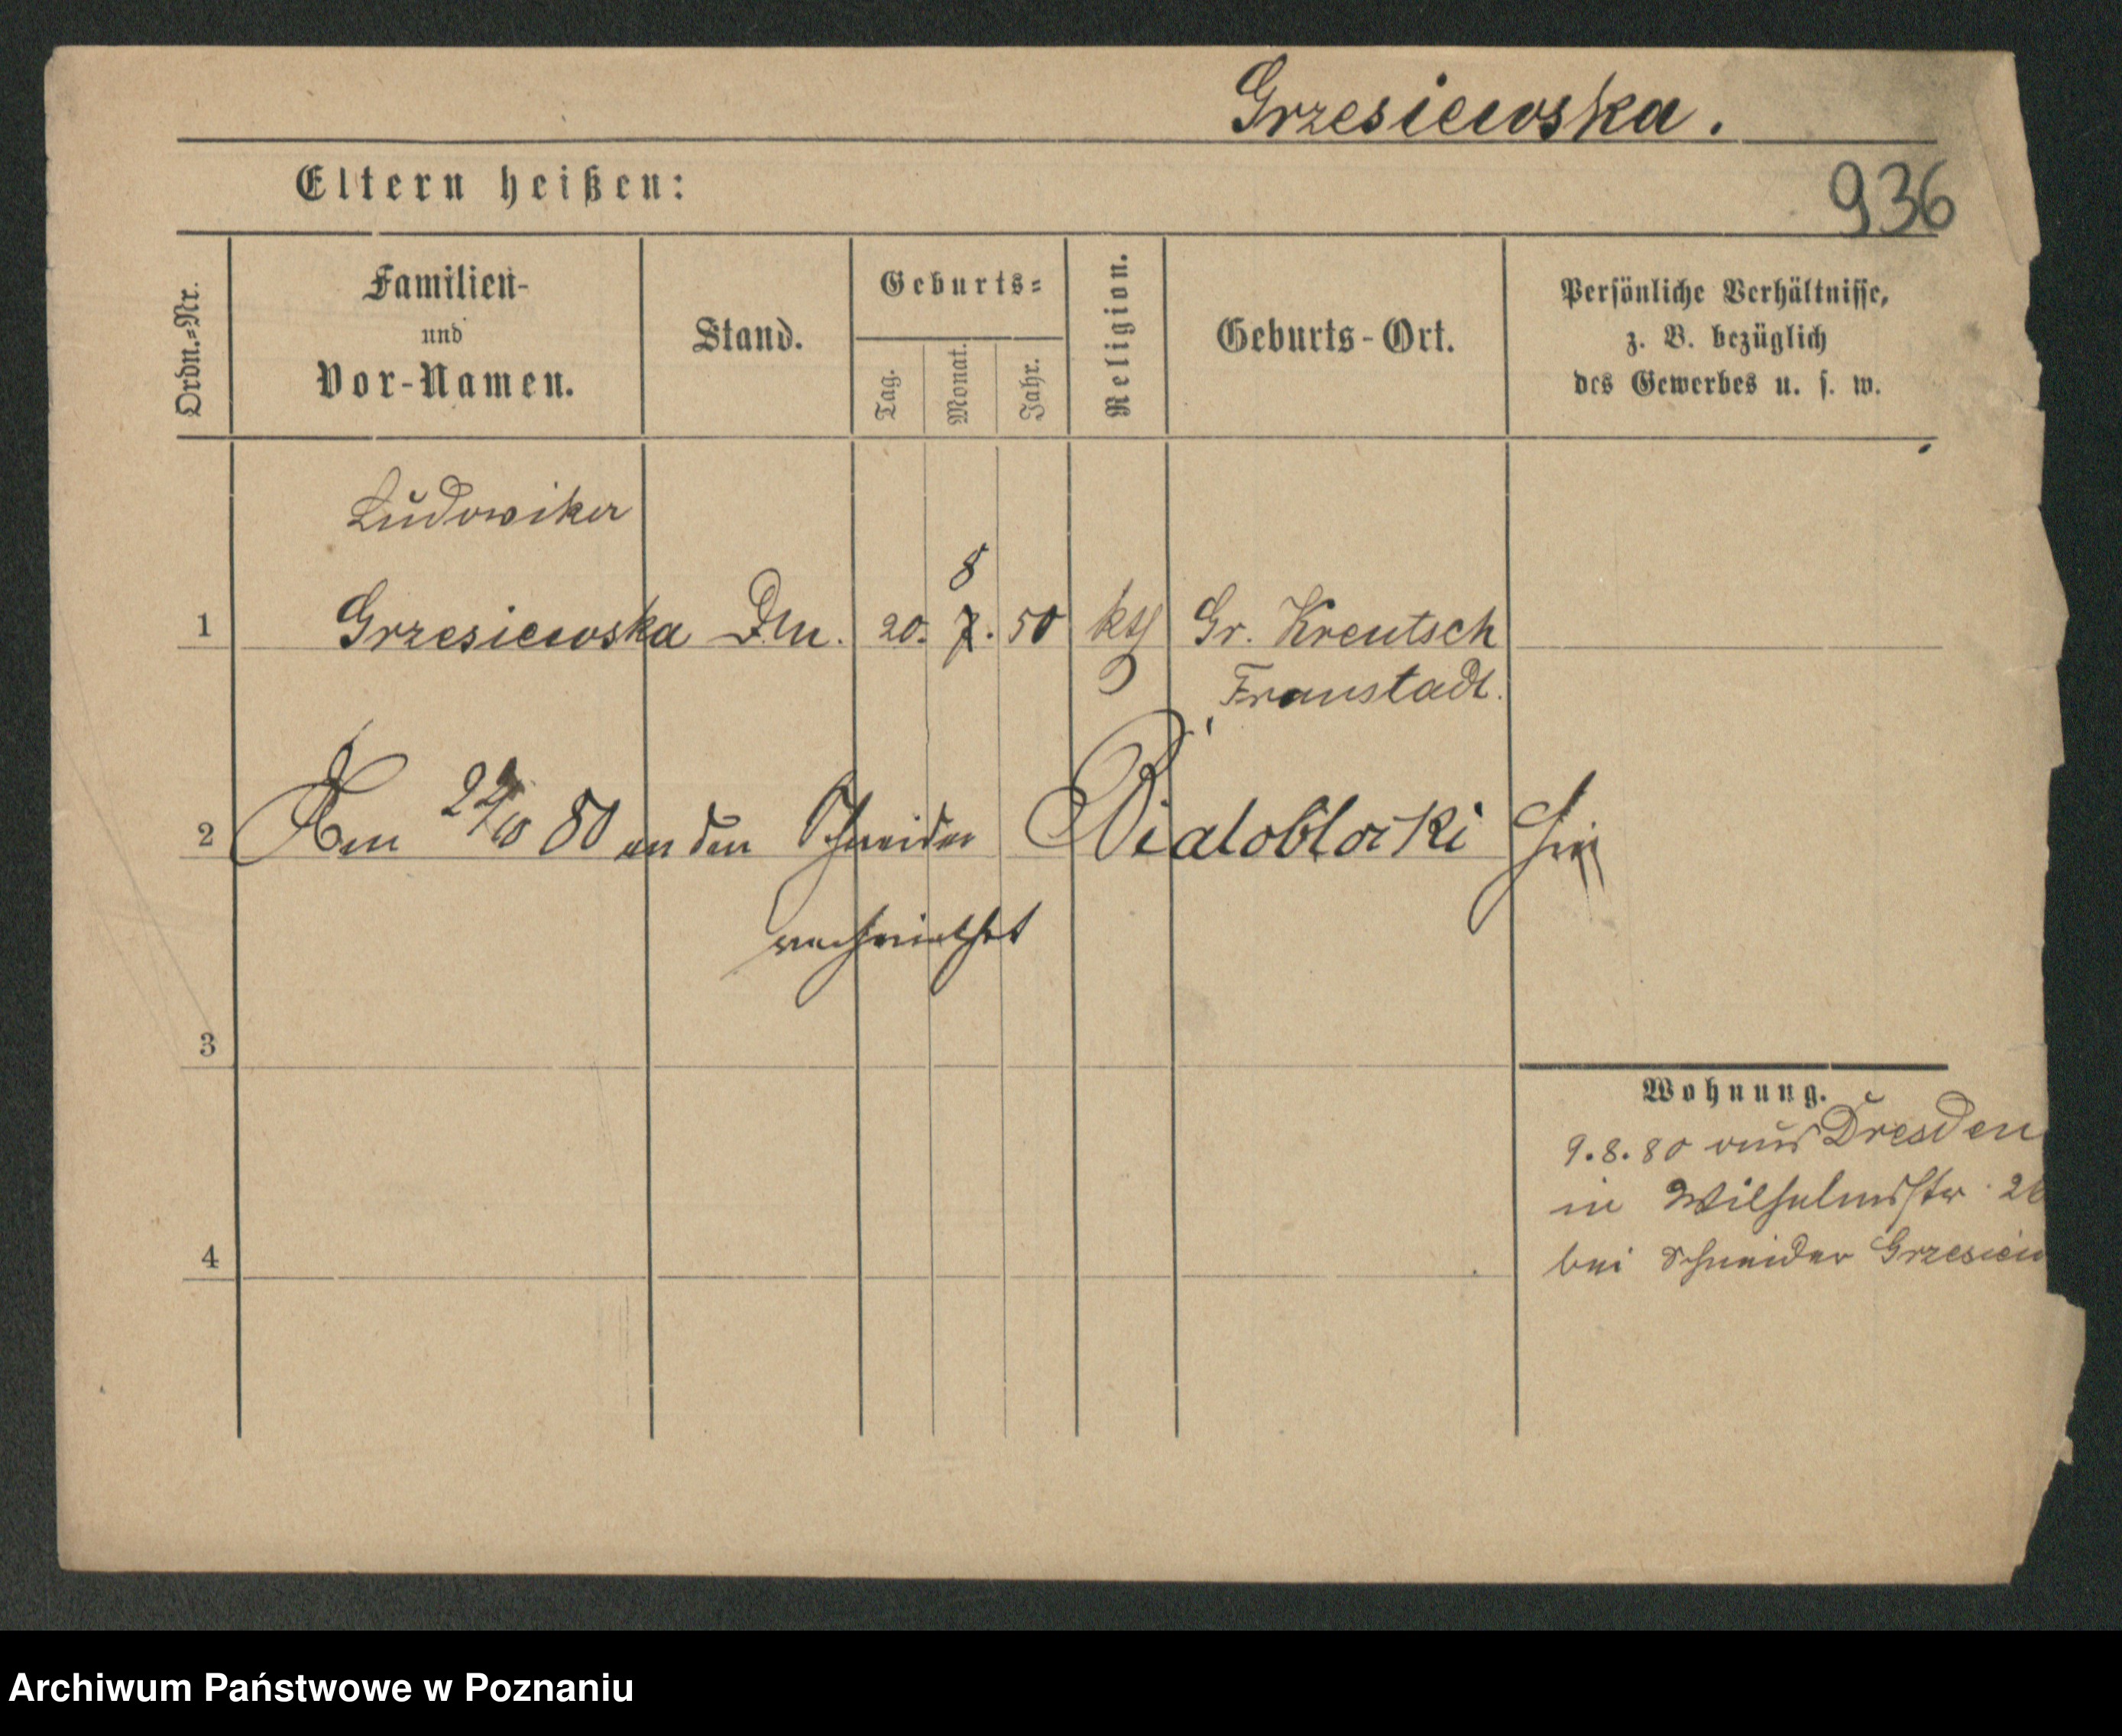 Grzesiewska.
Eltern heißen:
936
Ordn.-Nr.
Familien-
und
Vor-Namen.
Stand.
Geburts-
Tag.
Monat.
Jahr.
Religion.
Geburts-Ort.
Persönliche Verhältnisse,
z. B. bezüglich
des Gewerbes u. s. w.
Ludowika
8
1 Grzesiewska 20. 7. 50 kth Gr. Kreutsch
Fraustadt.
2 Am 80 an den Schneider Bialoblocki hier
verheirathet
3
Wohnung.
9.8.80 aus Dresden
in Wilhelmstr. 26
4
bei Schneider Grzesiew
Archiwum Państwowe w Poznaniu